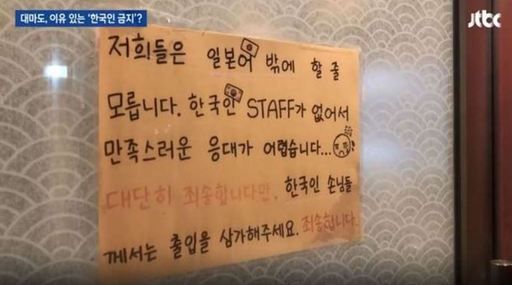 대마도, 이유 있는 '한국인 금지'?
jtbc
저희들은 일본어 밖에 할 줄
모릅니다. 한국인 STAFF가 없어서
만족스러운 응대가 어렵습니다...
대단히 죄송합니다만, 한국인 손님들
께서는 출입을 삼가해주세요. 죄송합니다.